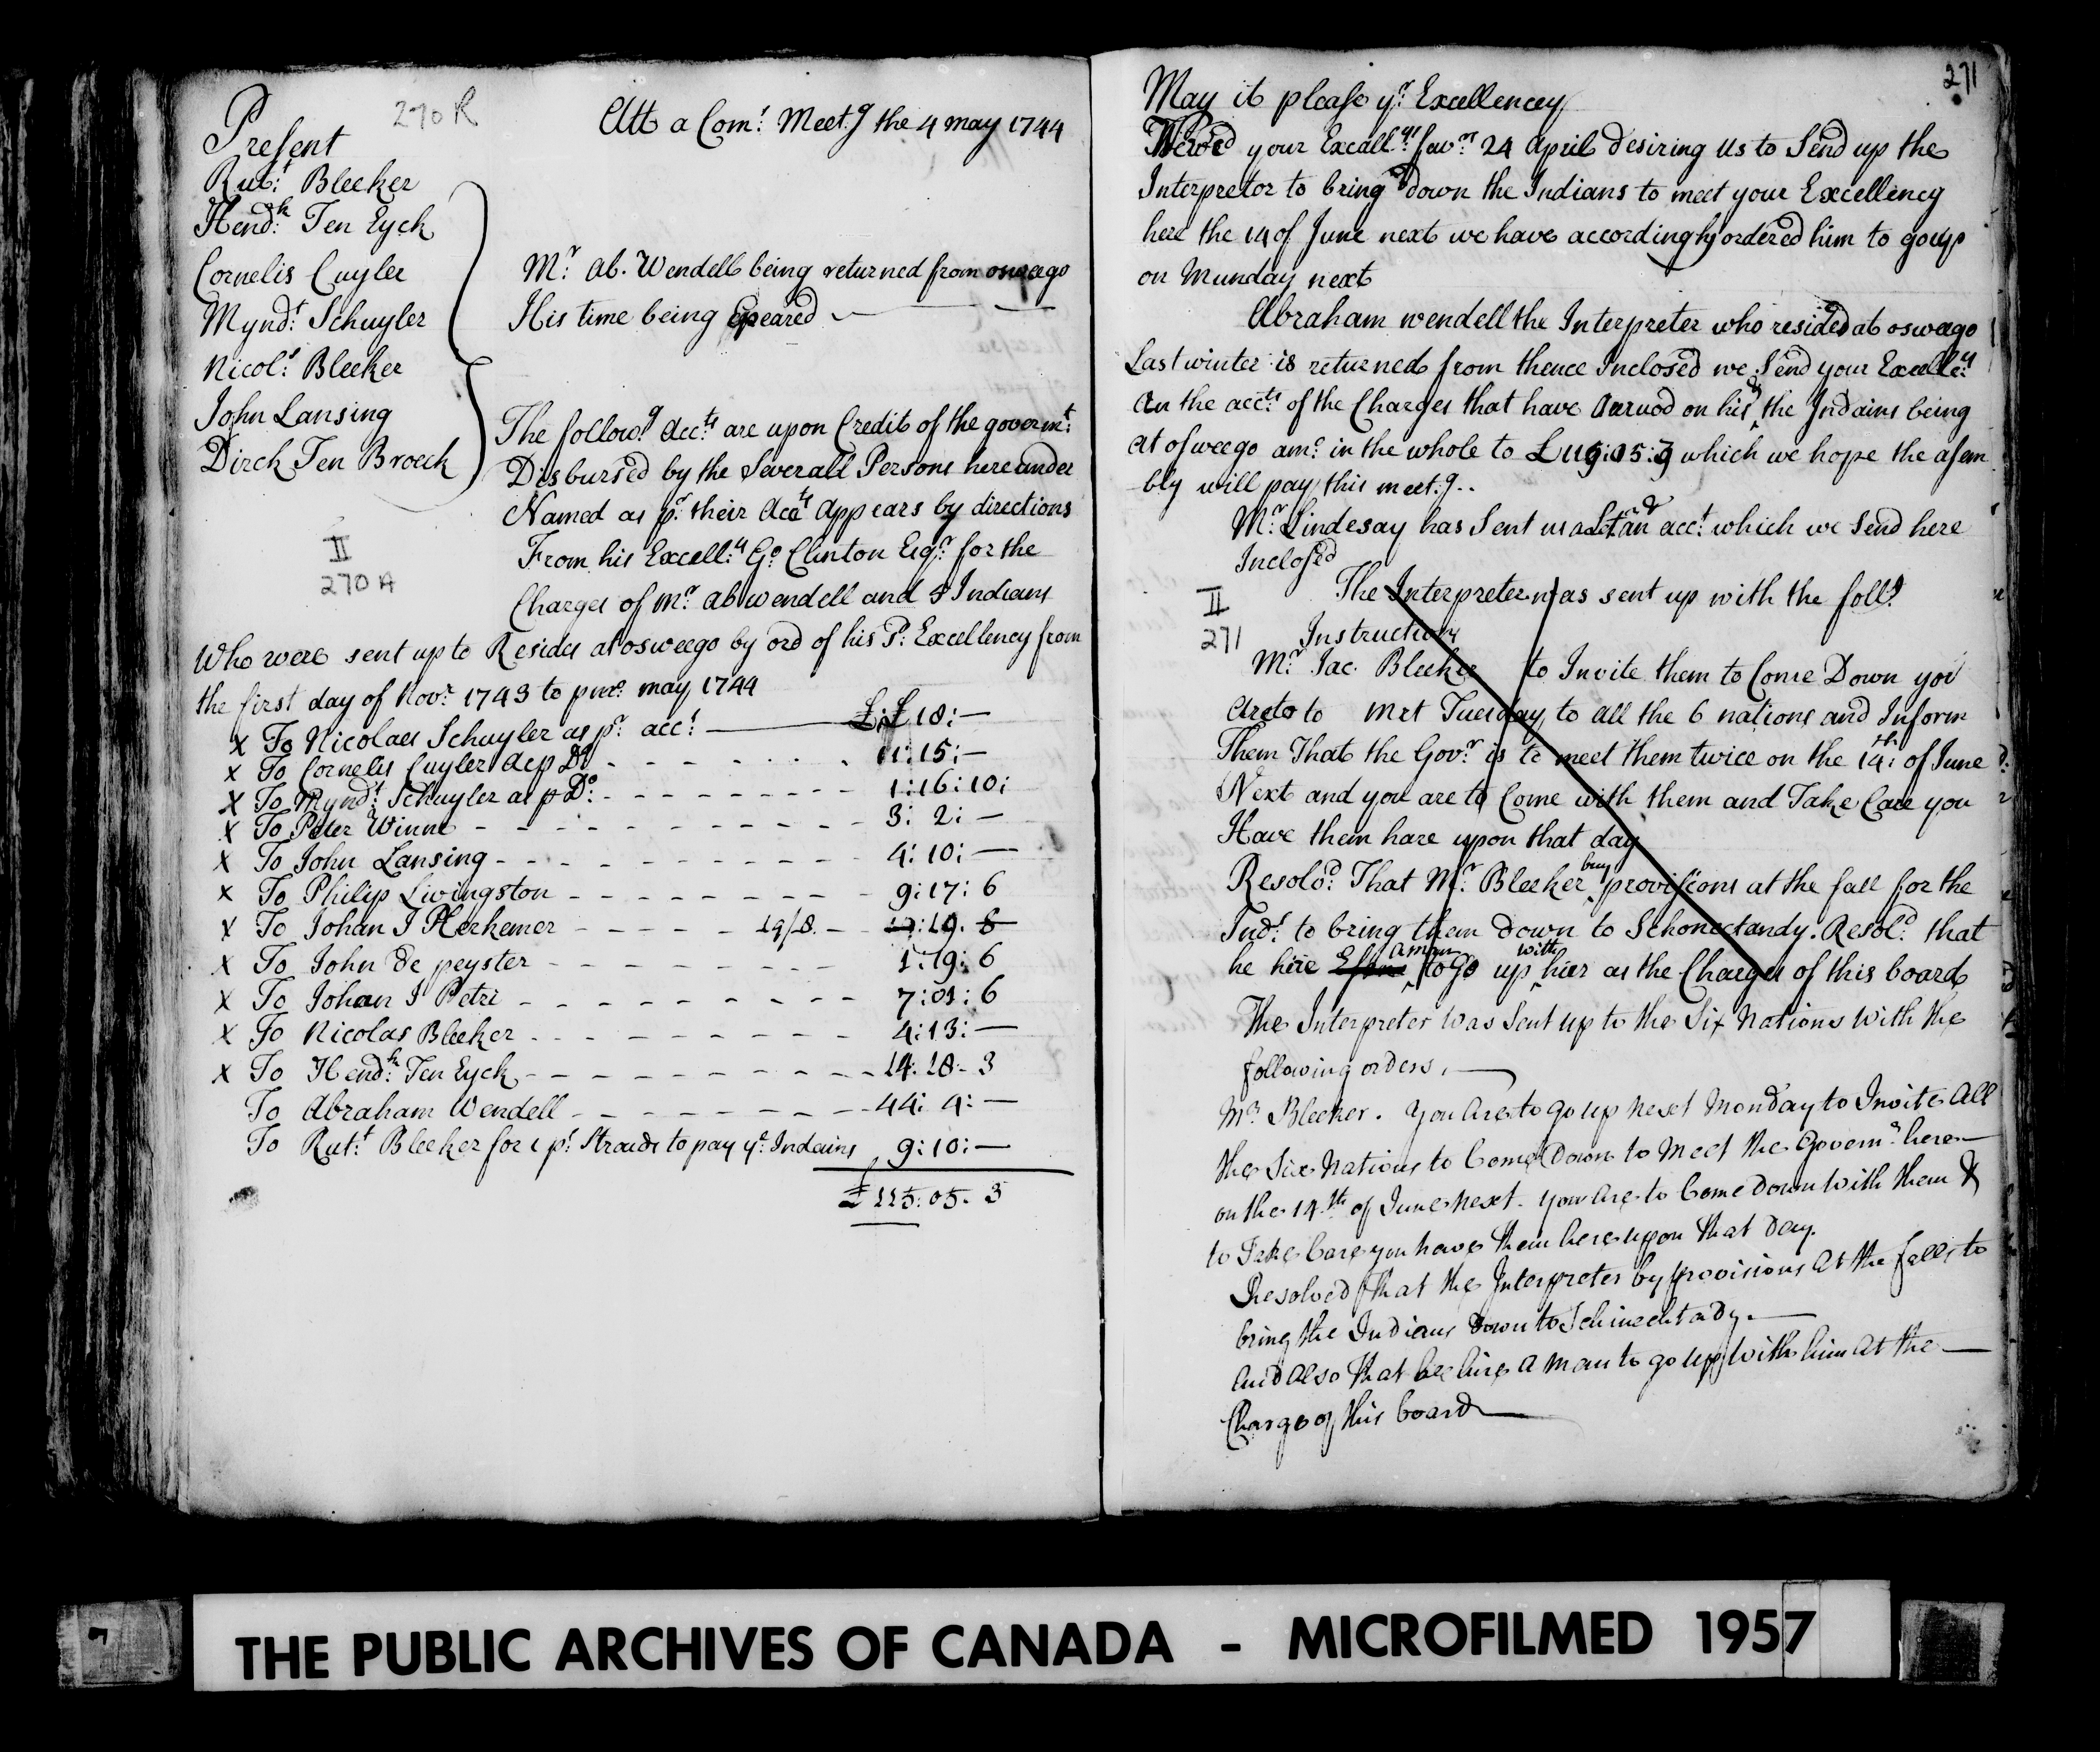 270 R
Att a Com.t Meet.g the 4 may 1744
Present
Rut.t Bleeker
Hend.k Ten Eyck
Cornelis Cuyler
Mynd.t Schuyler
Nicol.s Bleeker
John Lansing
Dirck Ten Broeck
M.r Ab. Wendell being returned from oswego
His time being Epeared
The follow.g Acc.ts are upon Credit of the governm.t
Disbursed by the Severall Persons hereunder
Named as p.r their Acc.ts Appears by directions
From his Excell.y G.o Clinton Esq.r for the
Charges of M.r Ab Wendell and 5 Indians
II
270 A
Who were sent up to Resides at osweego by ord of his Excellency from
the first day of Nov.r 1743 to may 1744
x To Nicolaes Schuyler as p.r acc.t £ 18:—
x To Cornelis Cuyler as p D.o 11:15:—
x To Mynd.t Schuyler as p D.o 1:16:10:
x To Peter Winne 3: 2: —
x To John Lansing 4: 10: —
x To Philip Livingston 9:17: 6
x To Johan J Herkemer 19/8. 19. 8
x To John De peyster 1:19: 6
x To Johan J Petri 7:01: 6
x To Nicolas Bleeker 4:13: —
x To Hend.k Ten Eyck 14: 18- 3
To Abraham Wendell 44: 4: —
To Rut.t Bleeker for 1 p.s Strauds to pay y.e Indains 9:10: —
£ 115: 05. 3
271
May it please y.r Excellencey
We rec.d your Excell.ys fav.r 24 April desiring us to Send up the
Interpretor to bring down the Indians to meet your Excellency
here the 14 of June next we have accordingly ordered him to go up
on Munday next
Abraham wendell the Interpreter who resided at osweego
Last winter is returned from thence Inclosed we Send your Excelle.y
An the acc.ts of the Charges that have Acrued on his & the Indains being
at osweego am.o in the whole to £ 115:05:3 which we hope the asem
bly will pay this meet.g..
M.r Lindesay has Sent us a Let and an acc.t which we Send here
Inclosed
II
271
The Interpreter was sent up with the foll.g
Instructions
M.r Jac. Bleeker to Invite them to Come Down you
Are to to Tuesday to all the 6 nations and Inform
Them That the Gov.r is to meet them twice on the 14.th of June
Next and you are to Come with them and Take Care you
Have them hare upon that day
Resolv.d That M.r Bleeker buy provisions at the fall for the
Ind.s to bring them down to Schonectandy. Resol.d that
he hire a man to go up with hier as the Charges of this board
The Interpreter Was Sent up to the Six Nations With the
following orders.
M.r Bleeker. You Are to go up Next Monday to Invite All
the Six Nations to Come Down to Meet the Govern.r here
on the 14.th of June Next. You Are to Come Down With them &
to Take Care you have them here upon that day.
Resolved that the Interpreter by provisions At the falls to
bring the Indians Down to Schinechtady.
And Also that he hire A Man to go up With him At the
Charge of this board
THE PUBLIC ARCHIVES OF CANADA - MICROFILMED 1957